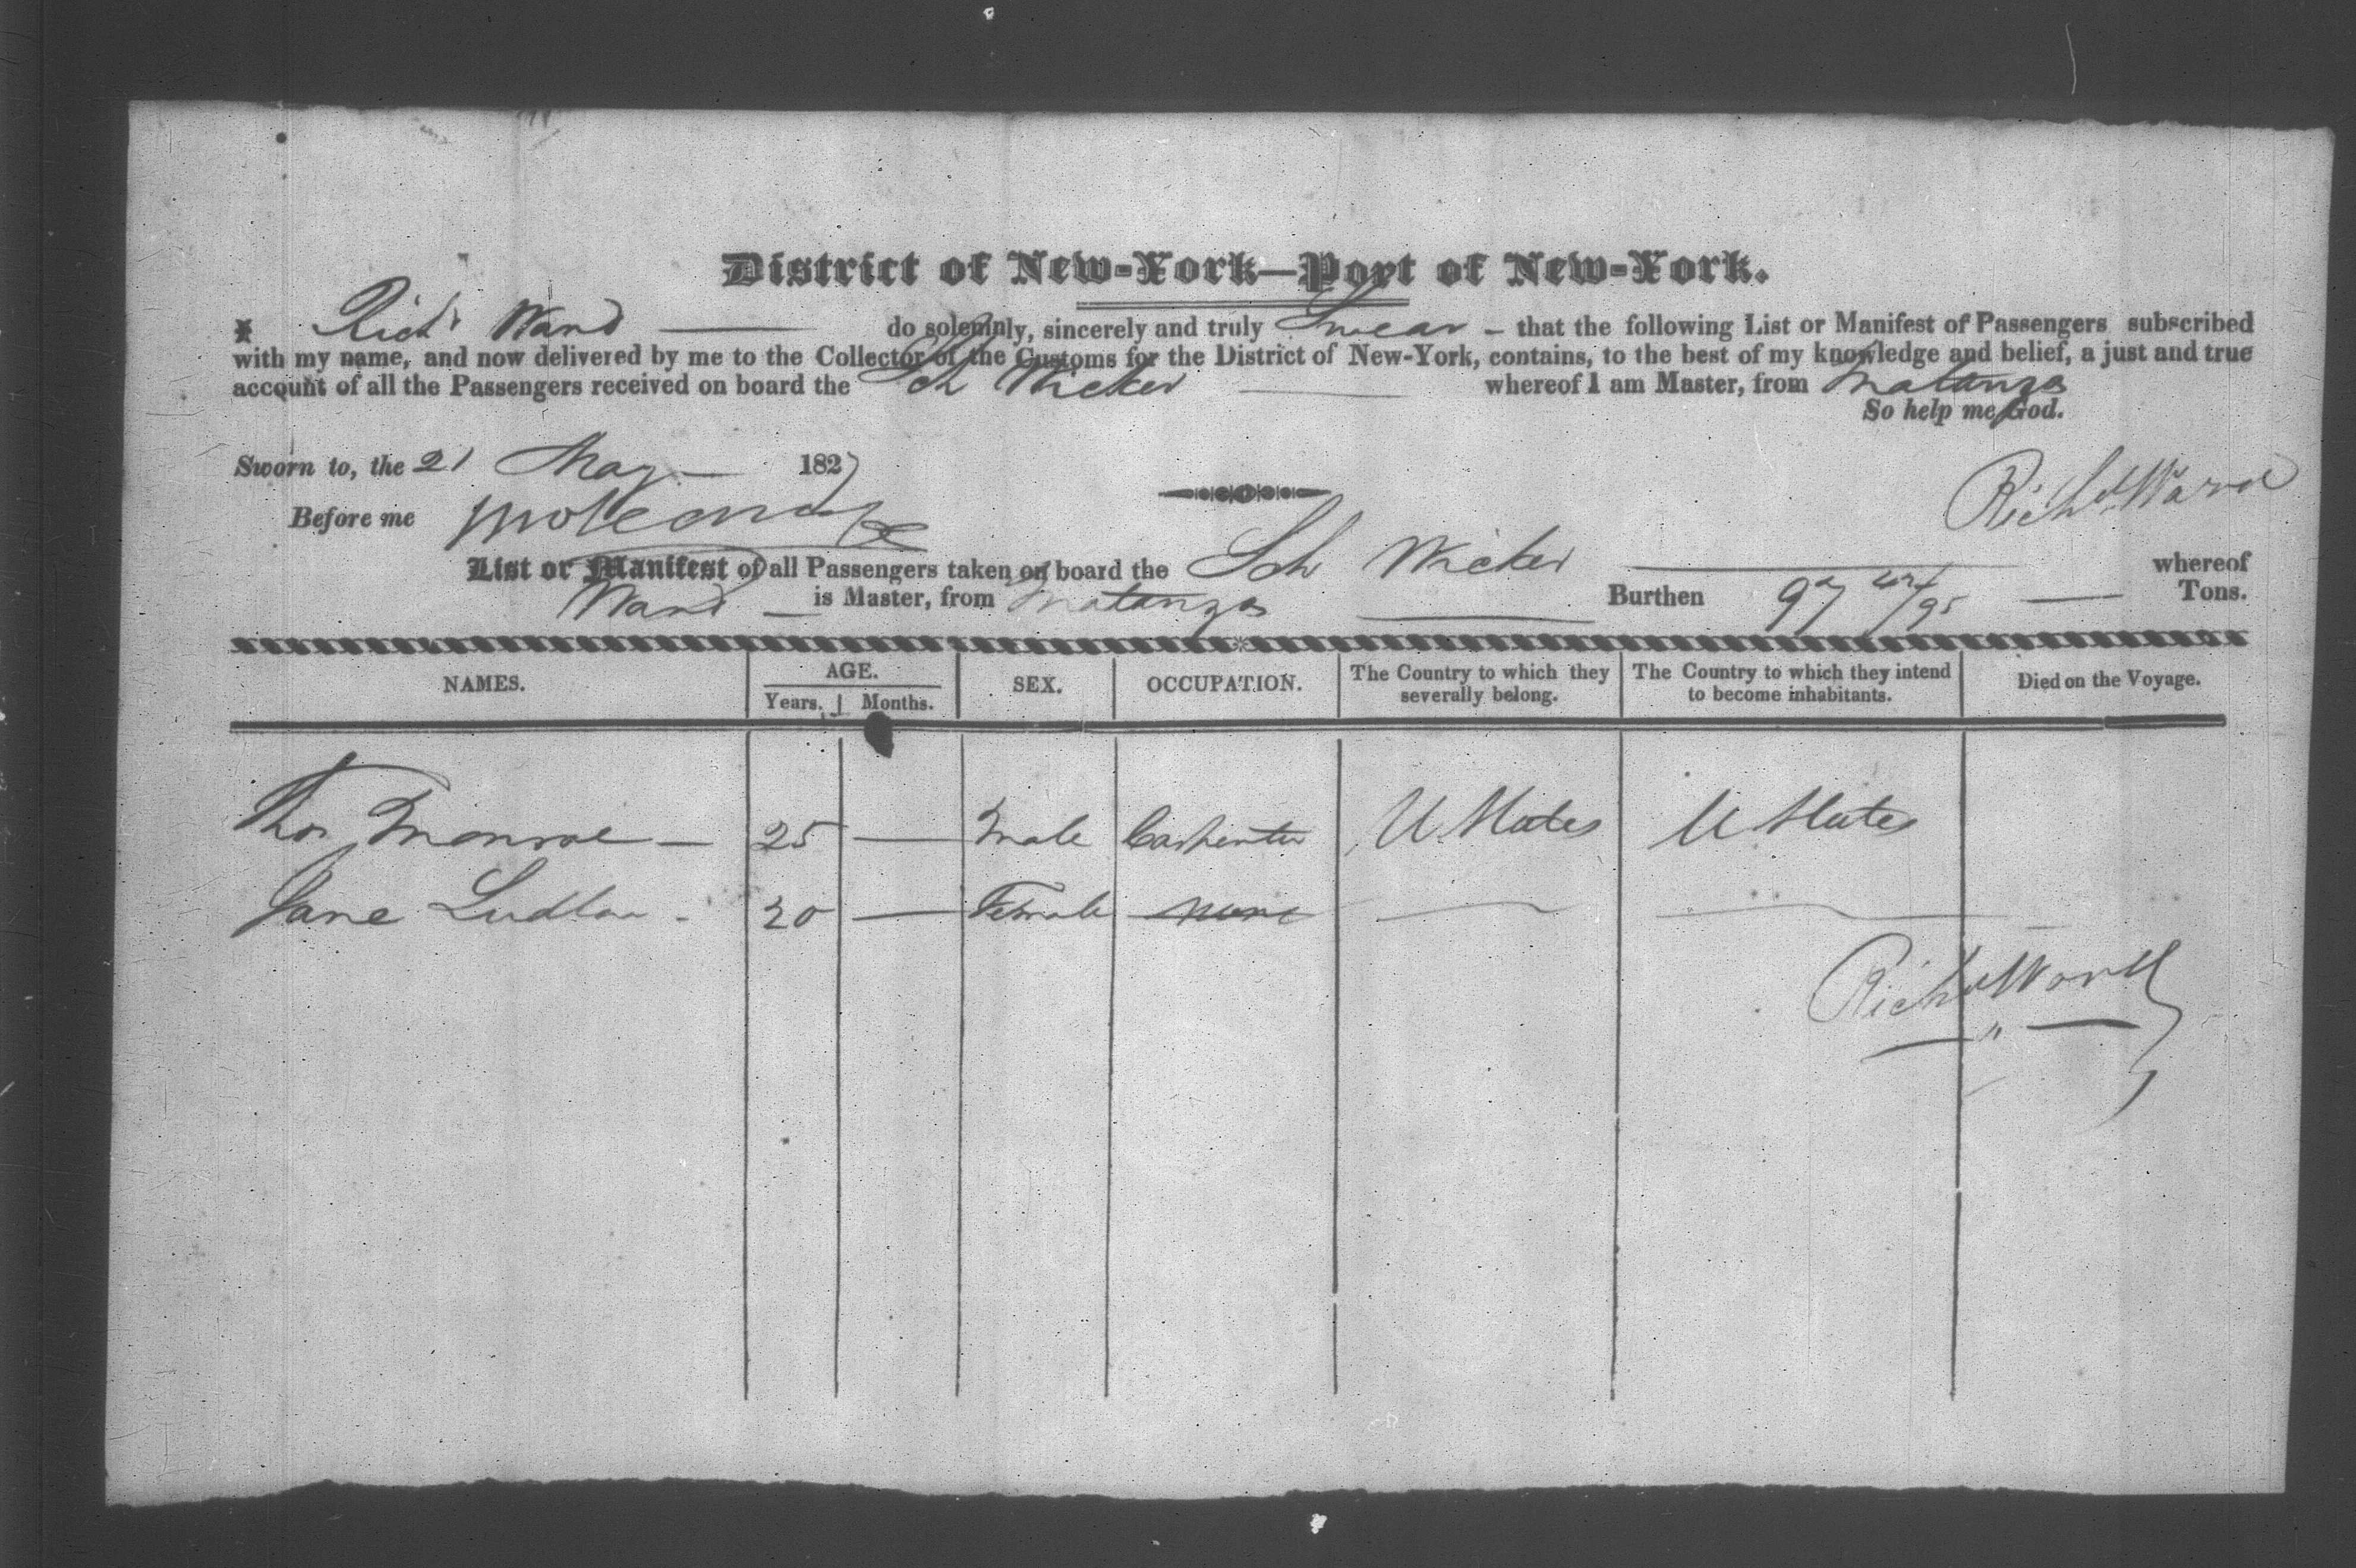 District of New-York—Port of New-York.
I Richd Ward do solemnly, sincerely and truly Swear - that the following List or Manifest of Passengers subscribed
with my name, and now delivered by me to the Collector of the Customs for the District of New-York, contains, to the best of my knowledge and belief, a just and true
account of all the Passengers received on board the Sch Wicker whereof I am Master, from Matanzas
So help me God.
Sworn to, the 21 May 1827
Richd Ward
Before me
List or Manifest of all Passengers taken on board the Sch Wicker whereof
Ward is Master, from Matanzas Burthen 97 /95 Tons.
NAMES. AGE. SEX. OCCUPATION. The Country to which they severally belong. The Country to which they intend to become inhabitants. Died on the Voyage.
Years. Months.
Thos Monroe — 25 — Male Carpenter U States U States
Jane Ludlow - 20 — Female none
Richd Ward